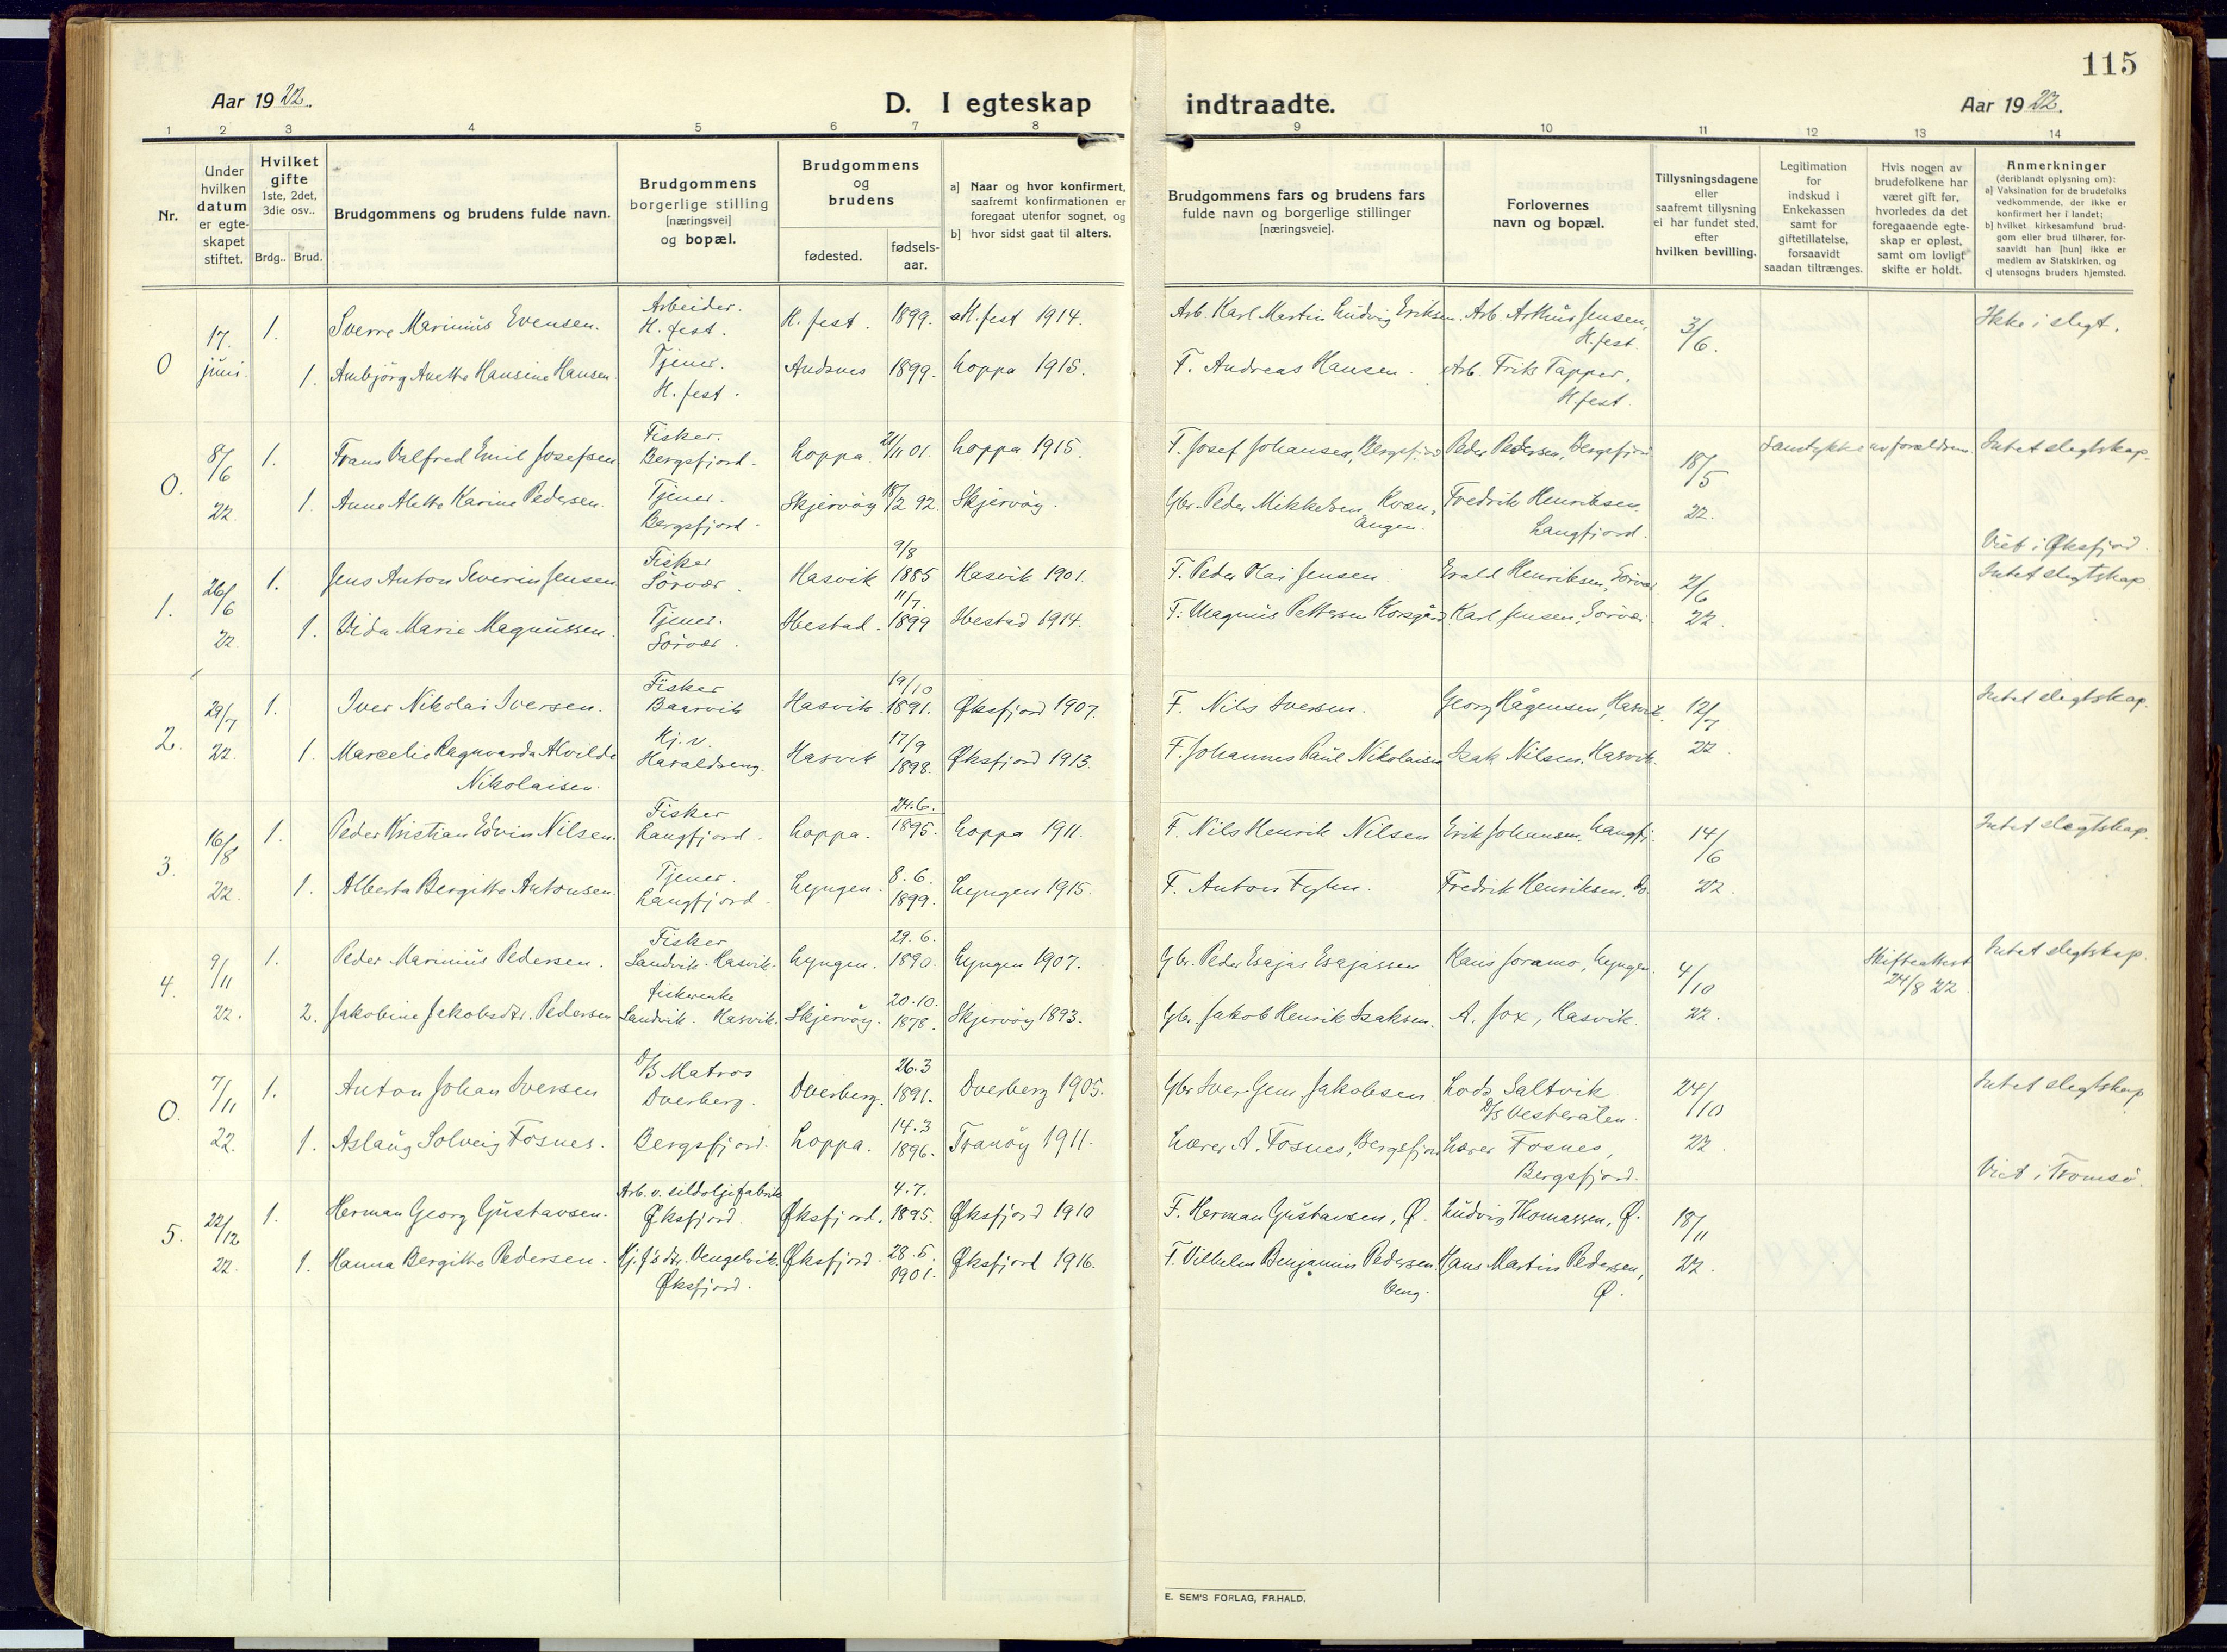 115
Aar 1922.
D. I egteskap indtraadte.
Aar 1922.
1 2 3 4 5 6 7 8 9 10 11 12 13 14
Nr.
Under hvilken datum er egte-skapet stiftet.
Hvilket gifte
1ste, 2det, 3die osv..
Brdg.. Brud.
Brudgommens og brudens fulde navn.
Brudgommens borgerlige stilling [næringsvei] og bopæl.
Brudgommens og brudens
fødested.
fødsels-aar.
a] Naar og hvor konfirmert, saafremt konfirmationen er foregaat utenfor sognet, og
b] hvor sidst gaat til alters.
Brudgommens fars og brudens fars fulde navn og borgerlige stillinger [næringsveie].
Forlovernes navn og bopæl.
Tillysningsdagene eller saafremt tillysning ei har fundet sted, efter hvilken bevilling.
Legitimation for indskud i Enkekassen samt for giftetillatelse, forsaavidt saadan tiltrænges.
Hvis nogen av brudefolkene har været gift før, hvorledes da det foregaaende egte-skap er opløst, samt om lovligt skifte er holdt.
Anmerkninger
(deriblandt oplysning om):
a) Vaksination for de brudefolks vedkommende, der ikke er konfirmert her i landet;
b) hvilket kirkesamfund brud-gom eller brud tilhører, for-saavidt han [hun] ikke er medlem av Statskirken, og
c) utensogns bruders hjemsted.
0 17. juni. 1. Sverre Marinius Evensen. Arbeider. H.fest. H.fest. 1899. H.fest 1914. Arb. Karl Martin Ludvig Eriksen. Arb. Arthur Jensen, H.fest. 3/6. Ikke i slegt.
1. Anbjørg Anette Hansine Hansen. Tjener. H.fest. Andsnes 1899. Loppa 1915. F. Andreas Hansen. Arb. Frits Tapper, H.fest.
0. 8/6 22. 1. Frans Valfred Emil Josefsen Fisker. Bergsfjord. Loppa. 21/11 01. Loppa 1915. F. Josef Johansen, Bergsfjord Peder Pedersen, Bergsfjord 18/5 22. Samtykke av forældrene. Intet slegtskap.
1. Anne Alette Karine Pedersen. Tjener. Bergsfjord. Skjervöy 18/2 92. Skjervöy. Gbr. Peder Mikkelsen, Kvæn-angen. Fredrik Henriksen Langfjord.
Viet i Øksfjord.
1. 26/6 22. 1. Jens Anton Severin Jensen Fisker Sörvær. Hasvik 9/8 1885 Hasvik 1901. F. Peder Olai Jensen. Evald Henriksen, Sörvær 2/6 22. Intet slegtskap
1. Vida Marie Magnussen. Tjener. Sörvær. 11/7. 1899 1914. F: Magnus Pettersen Korsgård Karl Jensen, Sörvær.
2. 29/7 22. 1. Iver Nikolai Iversen. Fisker Baarvik Hasvik. 19/10 1891. Øksfjord 1907. F. Nils Iversen. Georg Hågensen, Hasvik. 12/7 22 Intet slegtskap.
1. Marcelie Ragnvarda Alvilde Nikolaisen. Hj. v. Haraldseng. Hasvik 17/9 1898. Øksfjord 1913. F. Johannes Paul Nikolaisen Isak Nilsen, Hasvik.
3. 16/8 22. 1. Peder Kristian Edvin Nilsen. Fisker Langfjord. Loppa. 24.6. 1895. Loppa 1911. F. Nils Henrik Nilsen Erik Johansen, Langfj. 14/6 22. Intet slegtskap.
1. Alberta Bergitte Antonsen. Tjener. Langfjord. Lyngen. 8.6. 1899. Lyngen 1915. F. Anton Fyhn. Fredrik Henriksen, do
4. 9/11 22. 1. Peder Marinius Pedersen. Fisker Sandvik. Hasvik. Lyngen. 29.6. 1890. Lyngen 1907. Gbr. Peder Esajas Esajassen Hans Joramo, Lyngen. 4/10 22. Skifteattest 24/8 22. Intet slegtskap.
2. Jakobine Jakobsdtr. Pedersen fiskerenke Sandvik. Hasvik. Skjervöy. 20.10. 1878. Skjervöy 1893. Gbr. Jakob Henrik Isaksen. A. Fox, Hasvik.
0. 7/11 22. 1. Anton Johan Iversen D/S Matros Dverberg. Dverberg. 26.3 1891. Dverberg 1905. Gbr Iver Gem Jakobsen. Lods Saltvik D/S Vesterålen. 24/10 22. Intet slegtskap
1. Aslaug Solveig Fosnes. Bergsfjord. Loppa. 14.3 1896. Tranöy 1911. Lærer A. Fosnes, Bergsfjord Lærer Fosnes, Bergsfjord. Viet i Tromsö.
5. 22/12 22. 1. Herman Georg Gustavsen. Arb. v. sildoljefabrik Øksfjord. Øksfjord. 4.7. 1895 Øksfjord 1910 F. Herman Gustavsen, Ø. Ludvig Thomassen, Ø. 18/11 22.
1. Hanna Bergitte Pedersen. Hj. f's dtr. Vengelvik. Øksfjord. Øksfjord. 28.5. 1901. Øksfjord 1916. F. Vilhelm Benjamin Pedersen. Veng. Hans Martin Pedersen, Ø.
E. SEM'S FORLAG, FR.HALD.